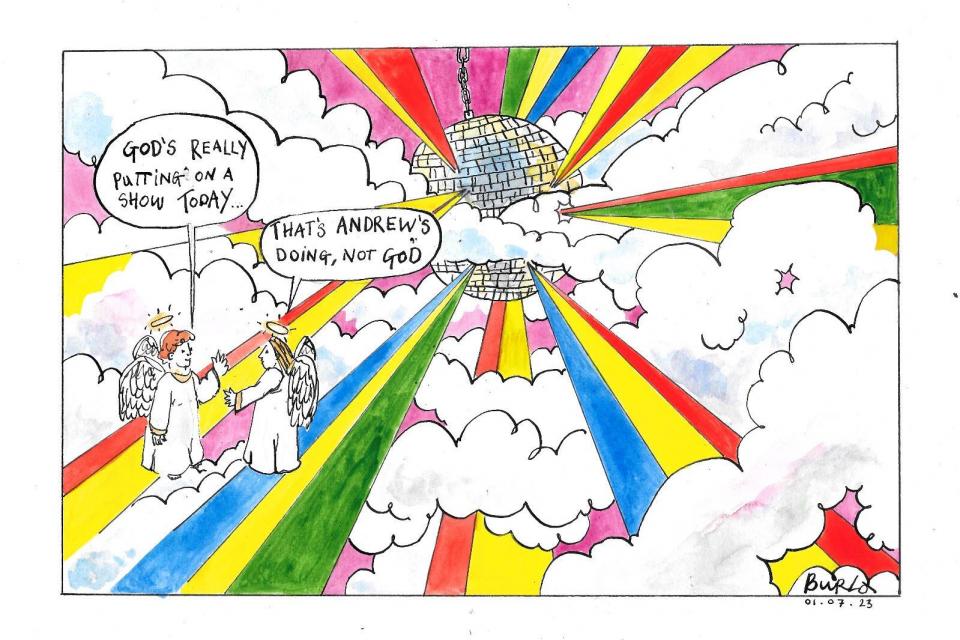 GOD'S REALLY
PUTTING ON A
SHOW TODAY...
THAT'S ANDREW'S
DOING, NOT GOD
BURLO
01.07.23